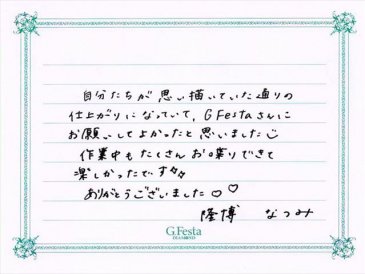 自分たちが思い描いていた通りの
仕上がりになっていて、G Festaさんに
お願いしてよかったと思いました
作業中もたくさんお喋りできて
楽しかったです♪♪
ありがとうございました♡♡
隆博 なつみ
G.Festa
DIAMOND